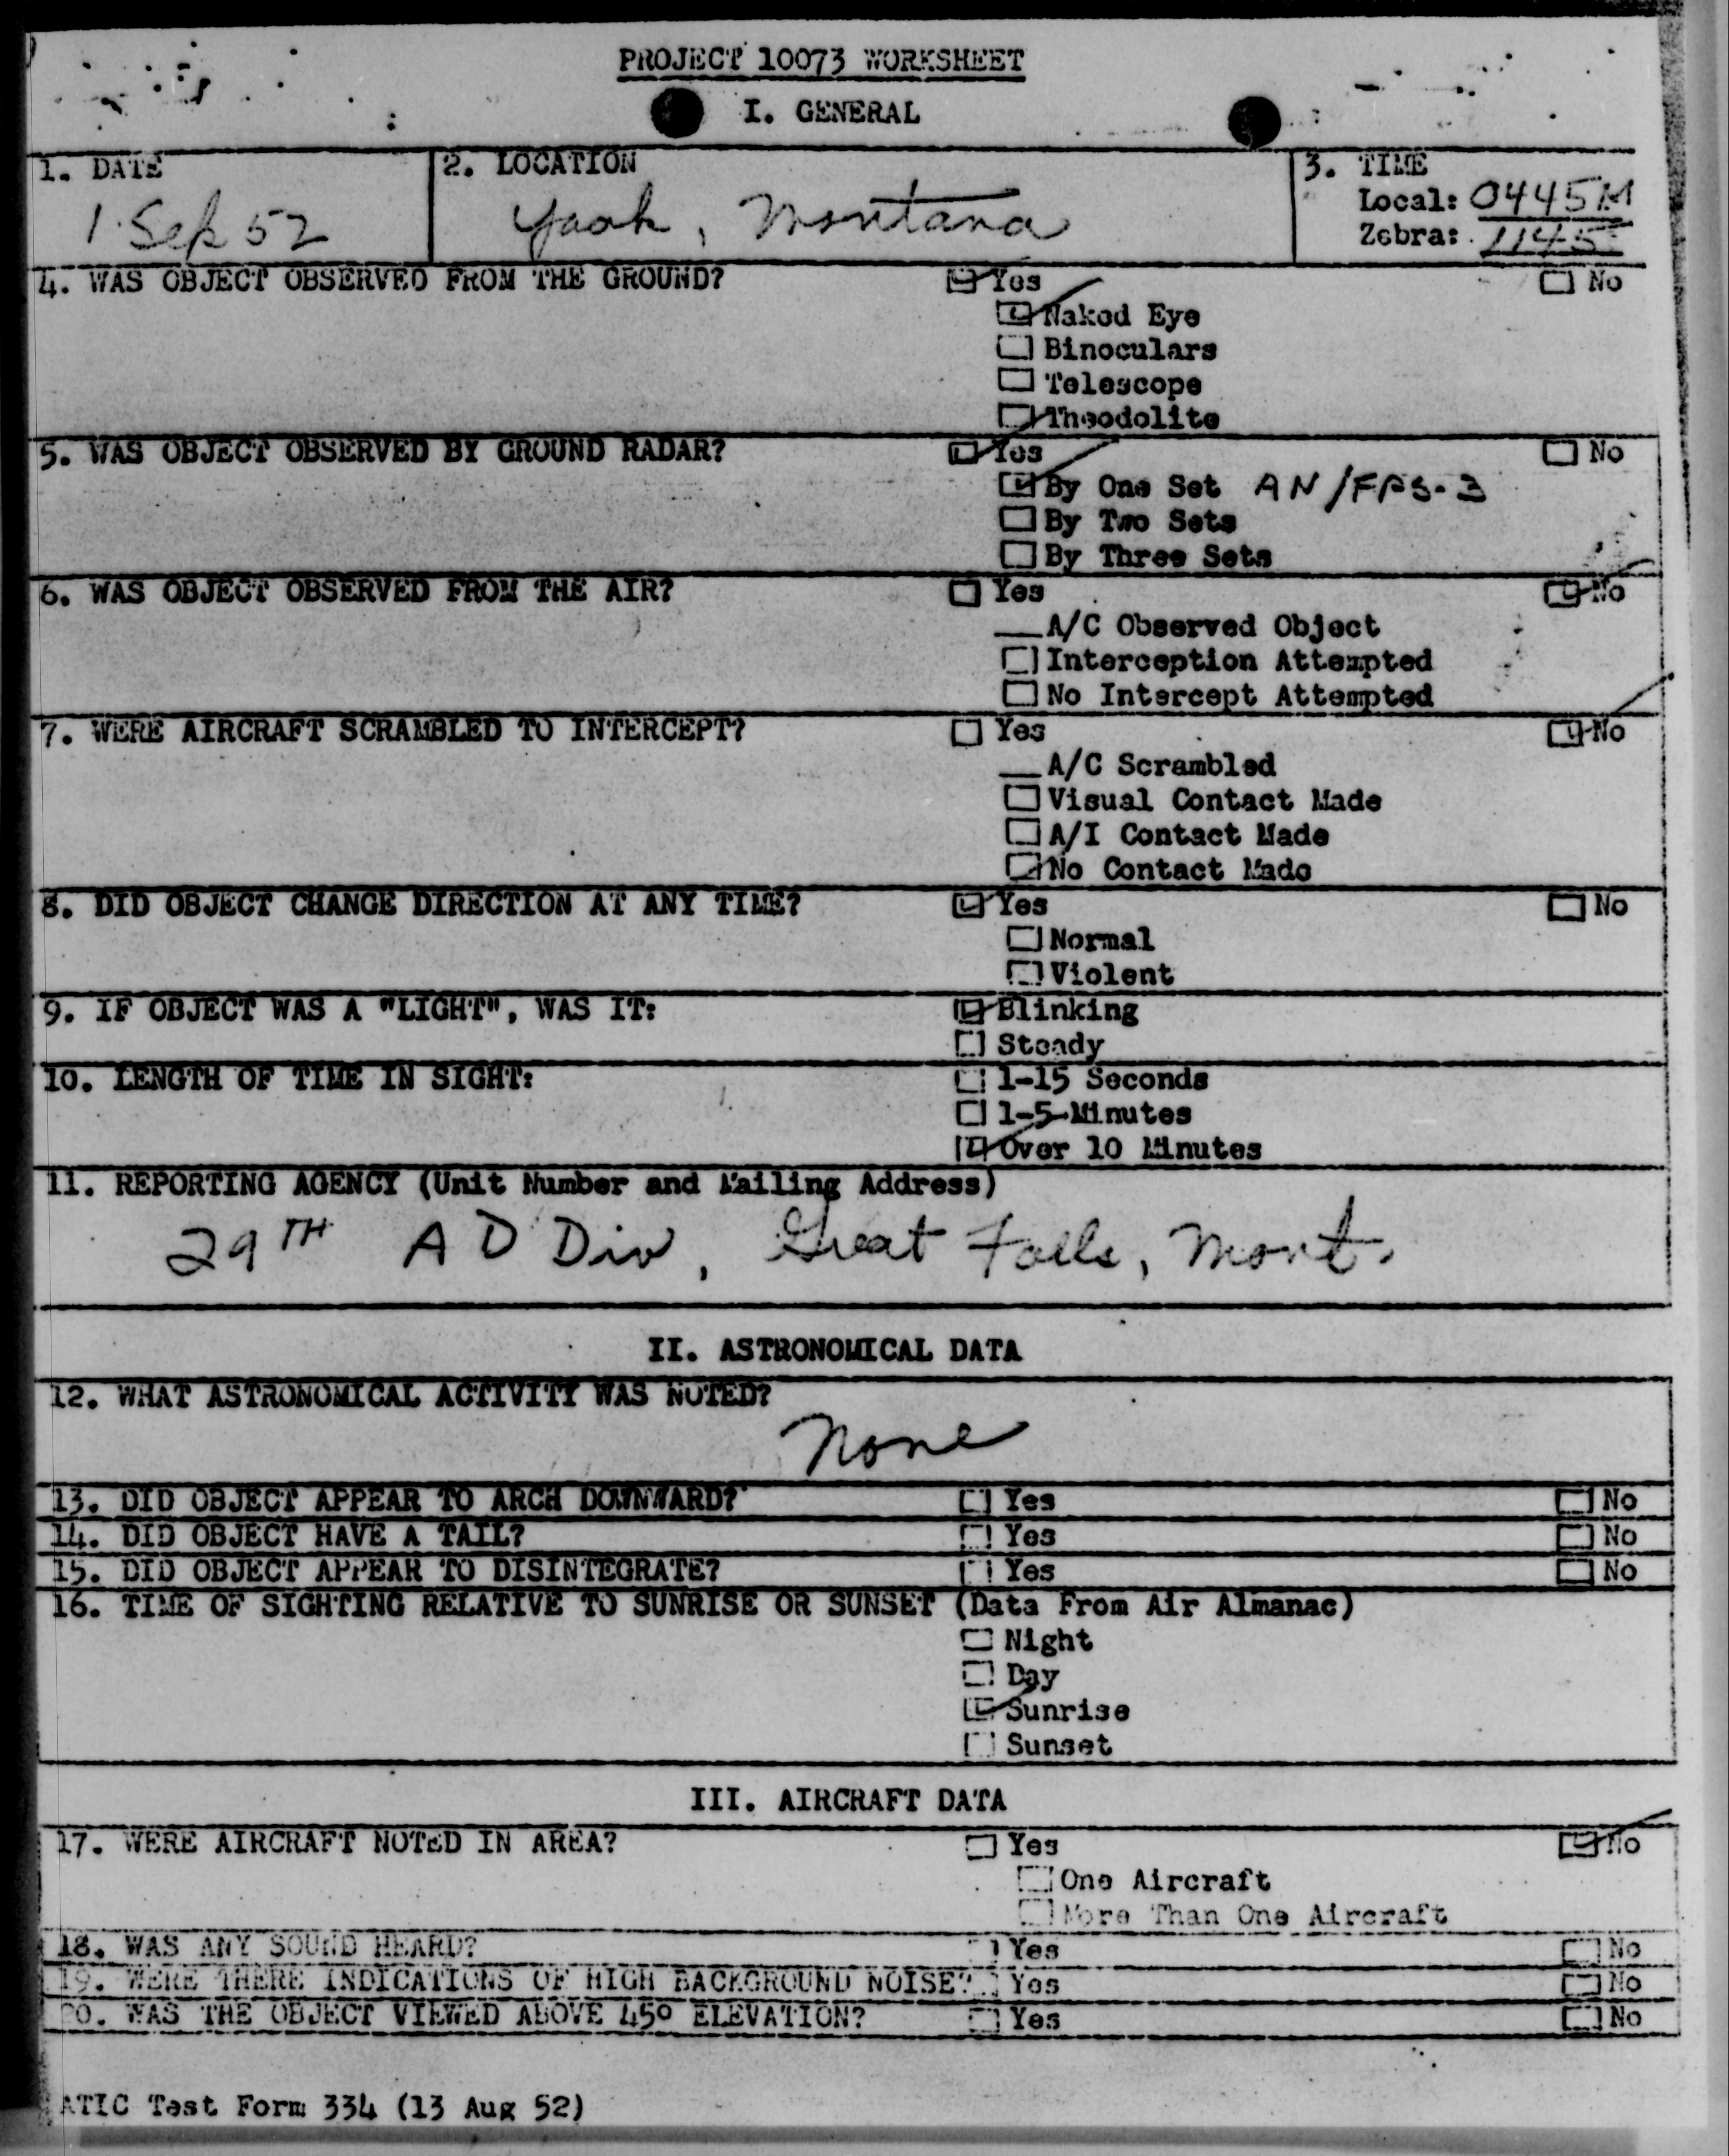 PROJECT 10073 WORKSHEET
I. GENERAL
1. DATE
2. LOCATION
3. TIME
1 Sep 52
Yaak, Montana
Local: 0445M
Zebra: 1145
4. WAS OBJECT OBSERVED FROM THE GROUND? Yes No
Naked Eye
Binoculars
Telescope
Theodolite
5. WAS OBJECT OBSERVED BY GROUND RADAR? Yes No
By One Set AN/FPS-3
By Two Sets
By Three Sets
6. WAS OBJECT OBSERVED FROM THE AIR? Yes No
A/C Observed Object
Interception Attempted
No Intercept Attempted
7. WERE AIRCRAFT SCRAMBLED TO INTERCEPT? Yes No
A/C Scrambled
Visual Contact Made
A/I Contact Made
No Contact Made
8. DID OBJECT CHANGE DIRECTION AT ANY TIME? Yes No
Normal
Violent
9. IF OBJECT WAS A "LIGHT", WAS IT: Blinking
Steady
10. LENGTH OF TIME IN SIGHT: 1-15 Seconds
1-5 Minutes
Over 10 Minutes
11. REPORTING AGENCY (Unit Number and Mailing Address)
29TH A D Div, Great Falls, Mont.
II. ASTRONOMICAL DATA
12. WHAT ASTRONOMICAL ACTIVITY WAS NOTED?
None
13. DID OBJECT APPEAR TO ARCH DOWNWARD? Yes No
14. DID OBJECT HAVE A TAIL? Yes No
15. DID OBJECT APPEAR TO DISINTEGRATE? Yes No
16. TIME OF SIGHTING RELATIVE TO SUNRISE OR SUNSET (Data From Air Almanac)
Night
Day
Sunrise
Sunset
III. AIRCRAFT DATA
17. WERE AIRCRAFT NOTED IN AREA? Yes No
One Aircraft
More Than One Aircraft
18. WAS ANY SOUND HEARD? Yes No
19. WERE THERE INDICATIONS OF HIGH BACKGROUND NOISE? Yes No
20. WAS THE OBJECT VIEWED ABOVE 45° ELEVATION? Yes No
ATIC Test Form 334 (13 Aug 52)